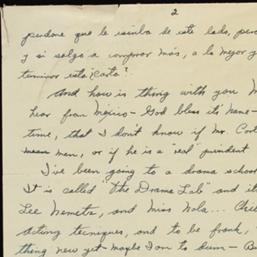 2
perdone que le escriba de este lado, pero
y si salgo a comprar más, a lo mejor y
terminar esta "Carta"!
And how is thing with you M
hear from Mejico - God bless it's name -
time, that I don't know if Mr. Cort
mean men, or if he is a "real" president
I've been going to a drama school
It is called "the Drama Lab" and it
Lee Nemetz, and Miss Nola...
acting tecniques, and to be frank,
thing new yet - maybe I am to dum - Bu